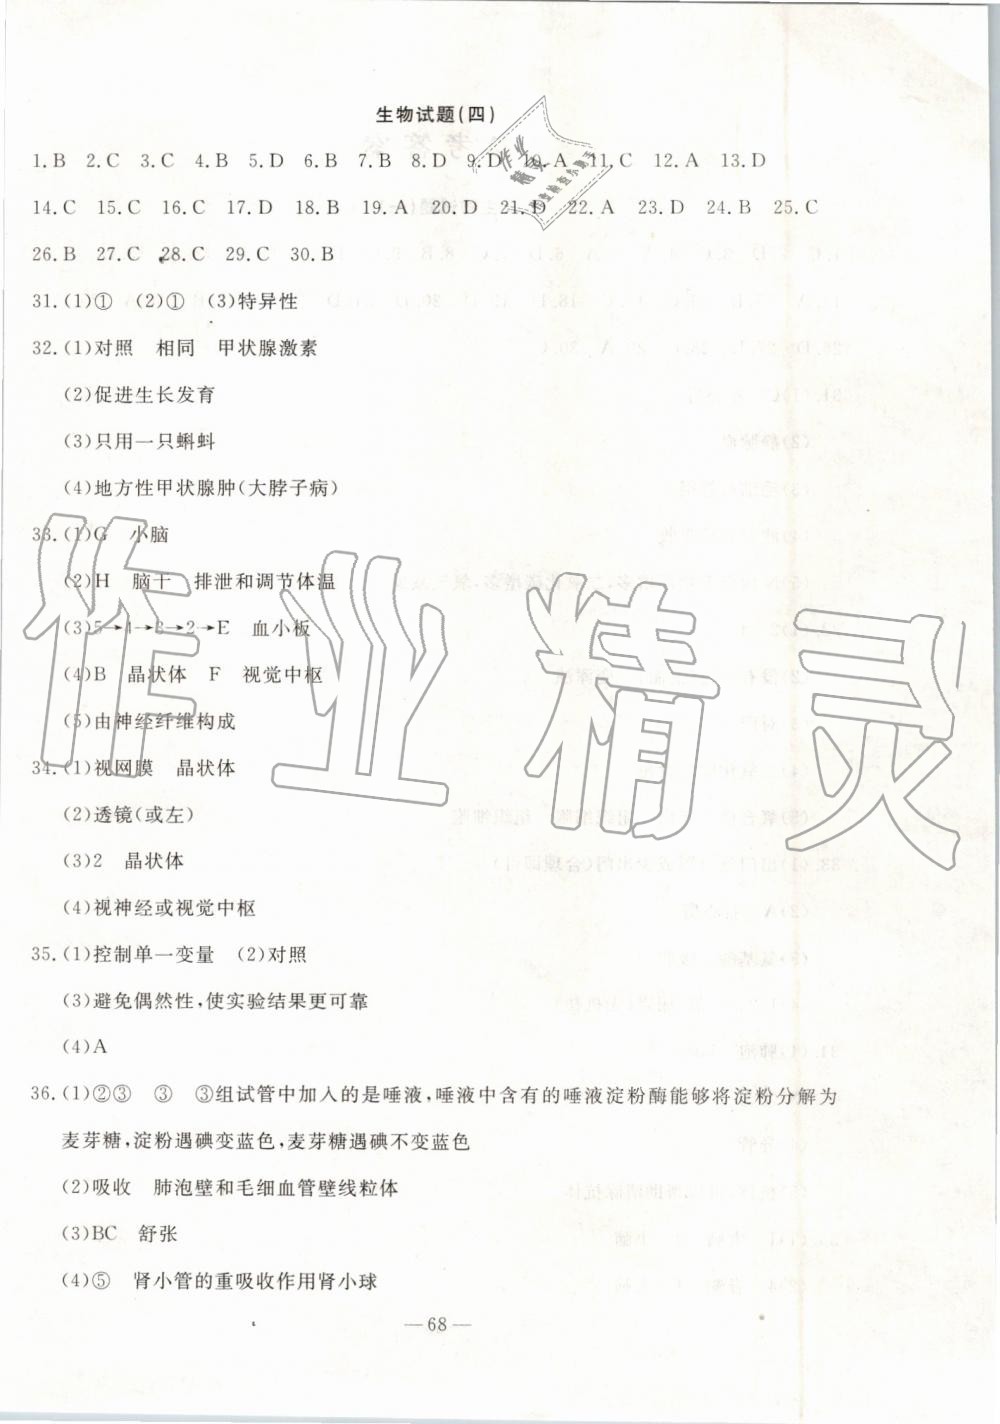 生物试题(四)
1.B 2.C 3.C 4.B 5.D 6.B 7.B 8.D 9.D 10.A 11.C 12.A 13.D
14.C 15.C 16.C 17.D 18.B 19.A 20.D 21.D 22.A 23.D 24.B 25.C
26.B 27.C 28.C 29.C 30.B
31.(1)① (2)① (3)特异性
32.(1)对照 相同 甲状腺激素
(2)促进生长发育
(3)只用一只蝌蚪
(4)地方性甲状腺肿(大脖子病)
33.(1)G 小脑
(2)H 脑干 排泄和调节体温
(3)5→4→3→2→E 血小板
(4)B 晶状体 F 视觉中枢
(5)由神经纤维构成
34.(1)视网膜 晶状体
(2)透镜(或左)
(3)2 晶状体
(4)视神经或视觉中枢
35.(1)控制单一变量 (2)对照
(3)避免偶然性,使实验结果更可靠
(4)A
36.(1)②③ ③ ③组试管中加入的是唾液,唾液中含有的唾液淀粉酶能够将淀粉分解为
麦芽糖,淀粉遇碘变蓝色,麦芽糖遇碘不变蓝色
(2)吸收 肺泡壁和毛细血管壁线粒体
(3)BC 舒张
(4)⑤ 肾小管的重吸收作用肾小球
— 68 —
作业精灵